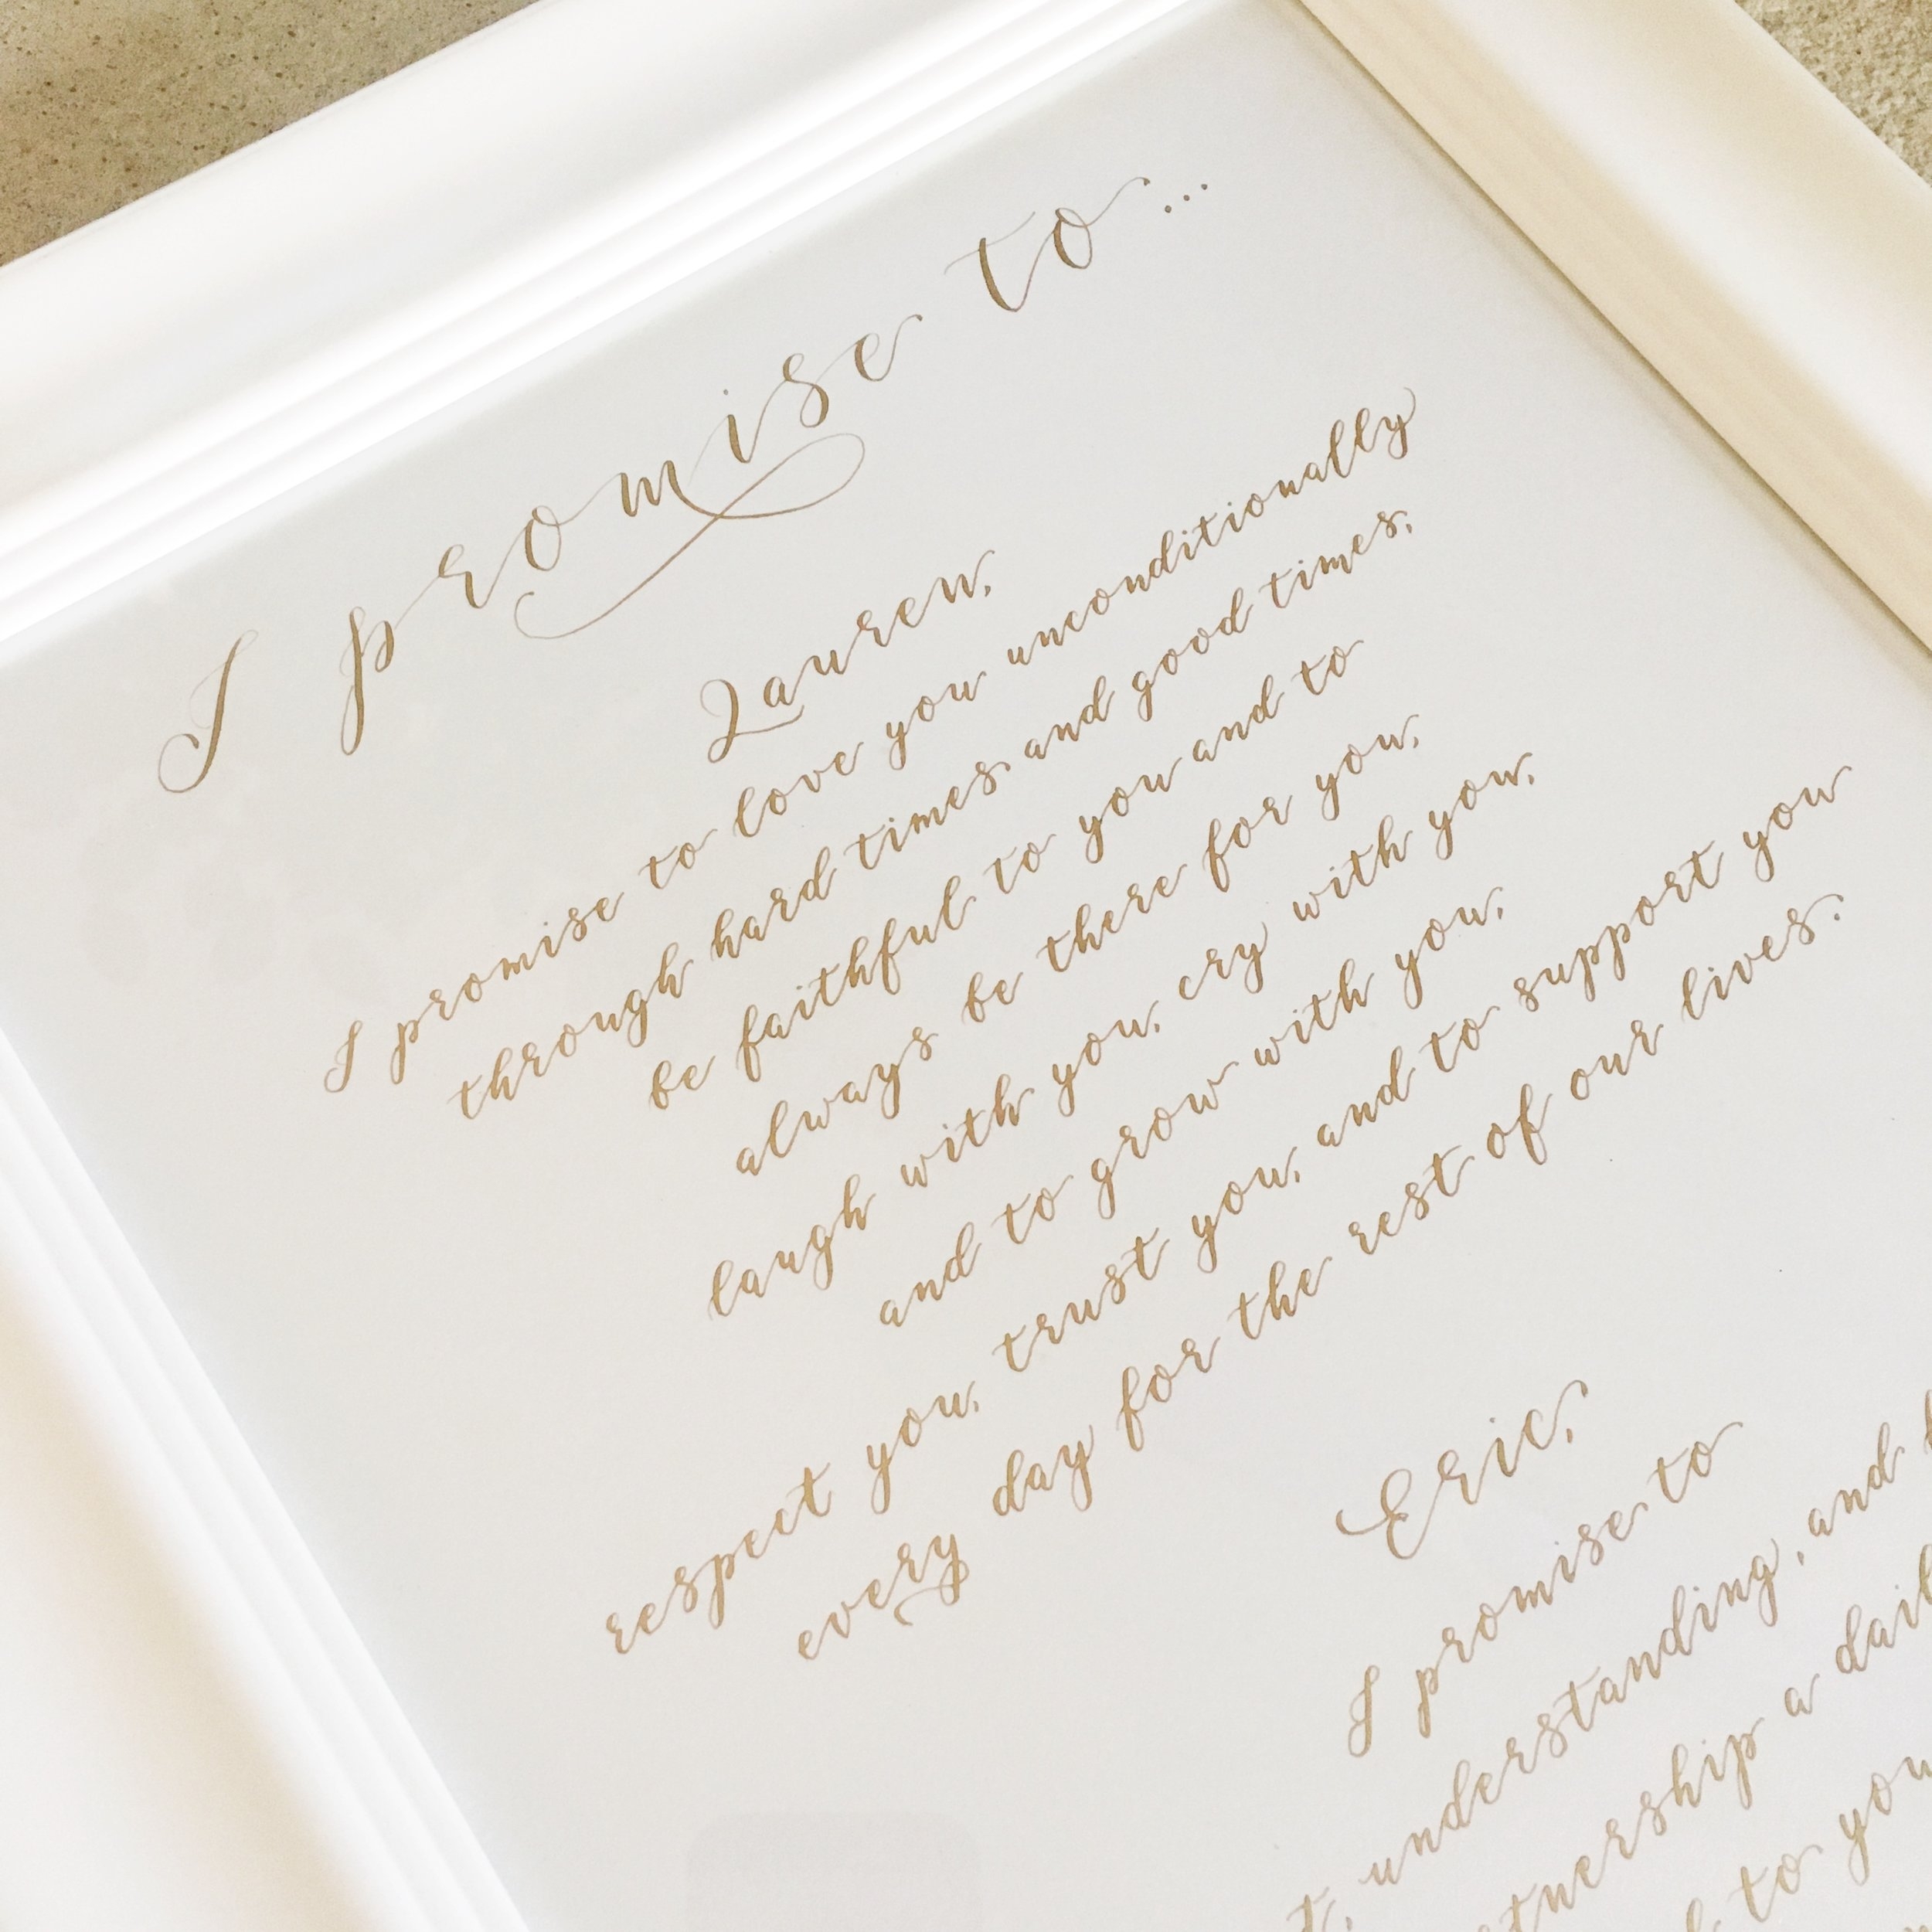 I promise to...
Lauren,
I promise to love you unconditionally
through hard times and good times,
be faithful to you and to
always be there for you,
laugh with you, cry with you,
and to grow with you,
respect you, trust you, and to support you
every day for the rest of our lives.
Eric,
I promise to
understanding, and
a
to you